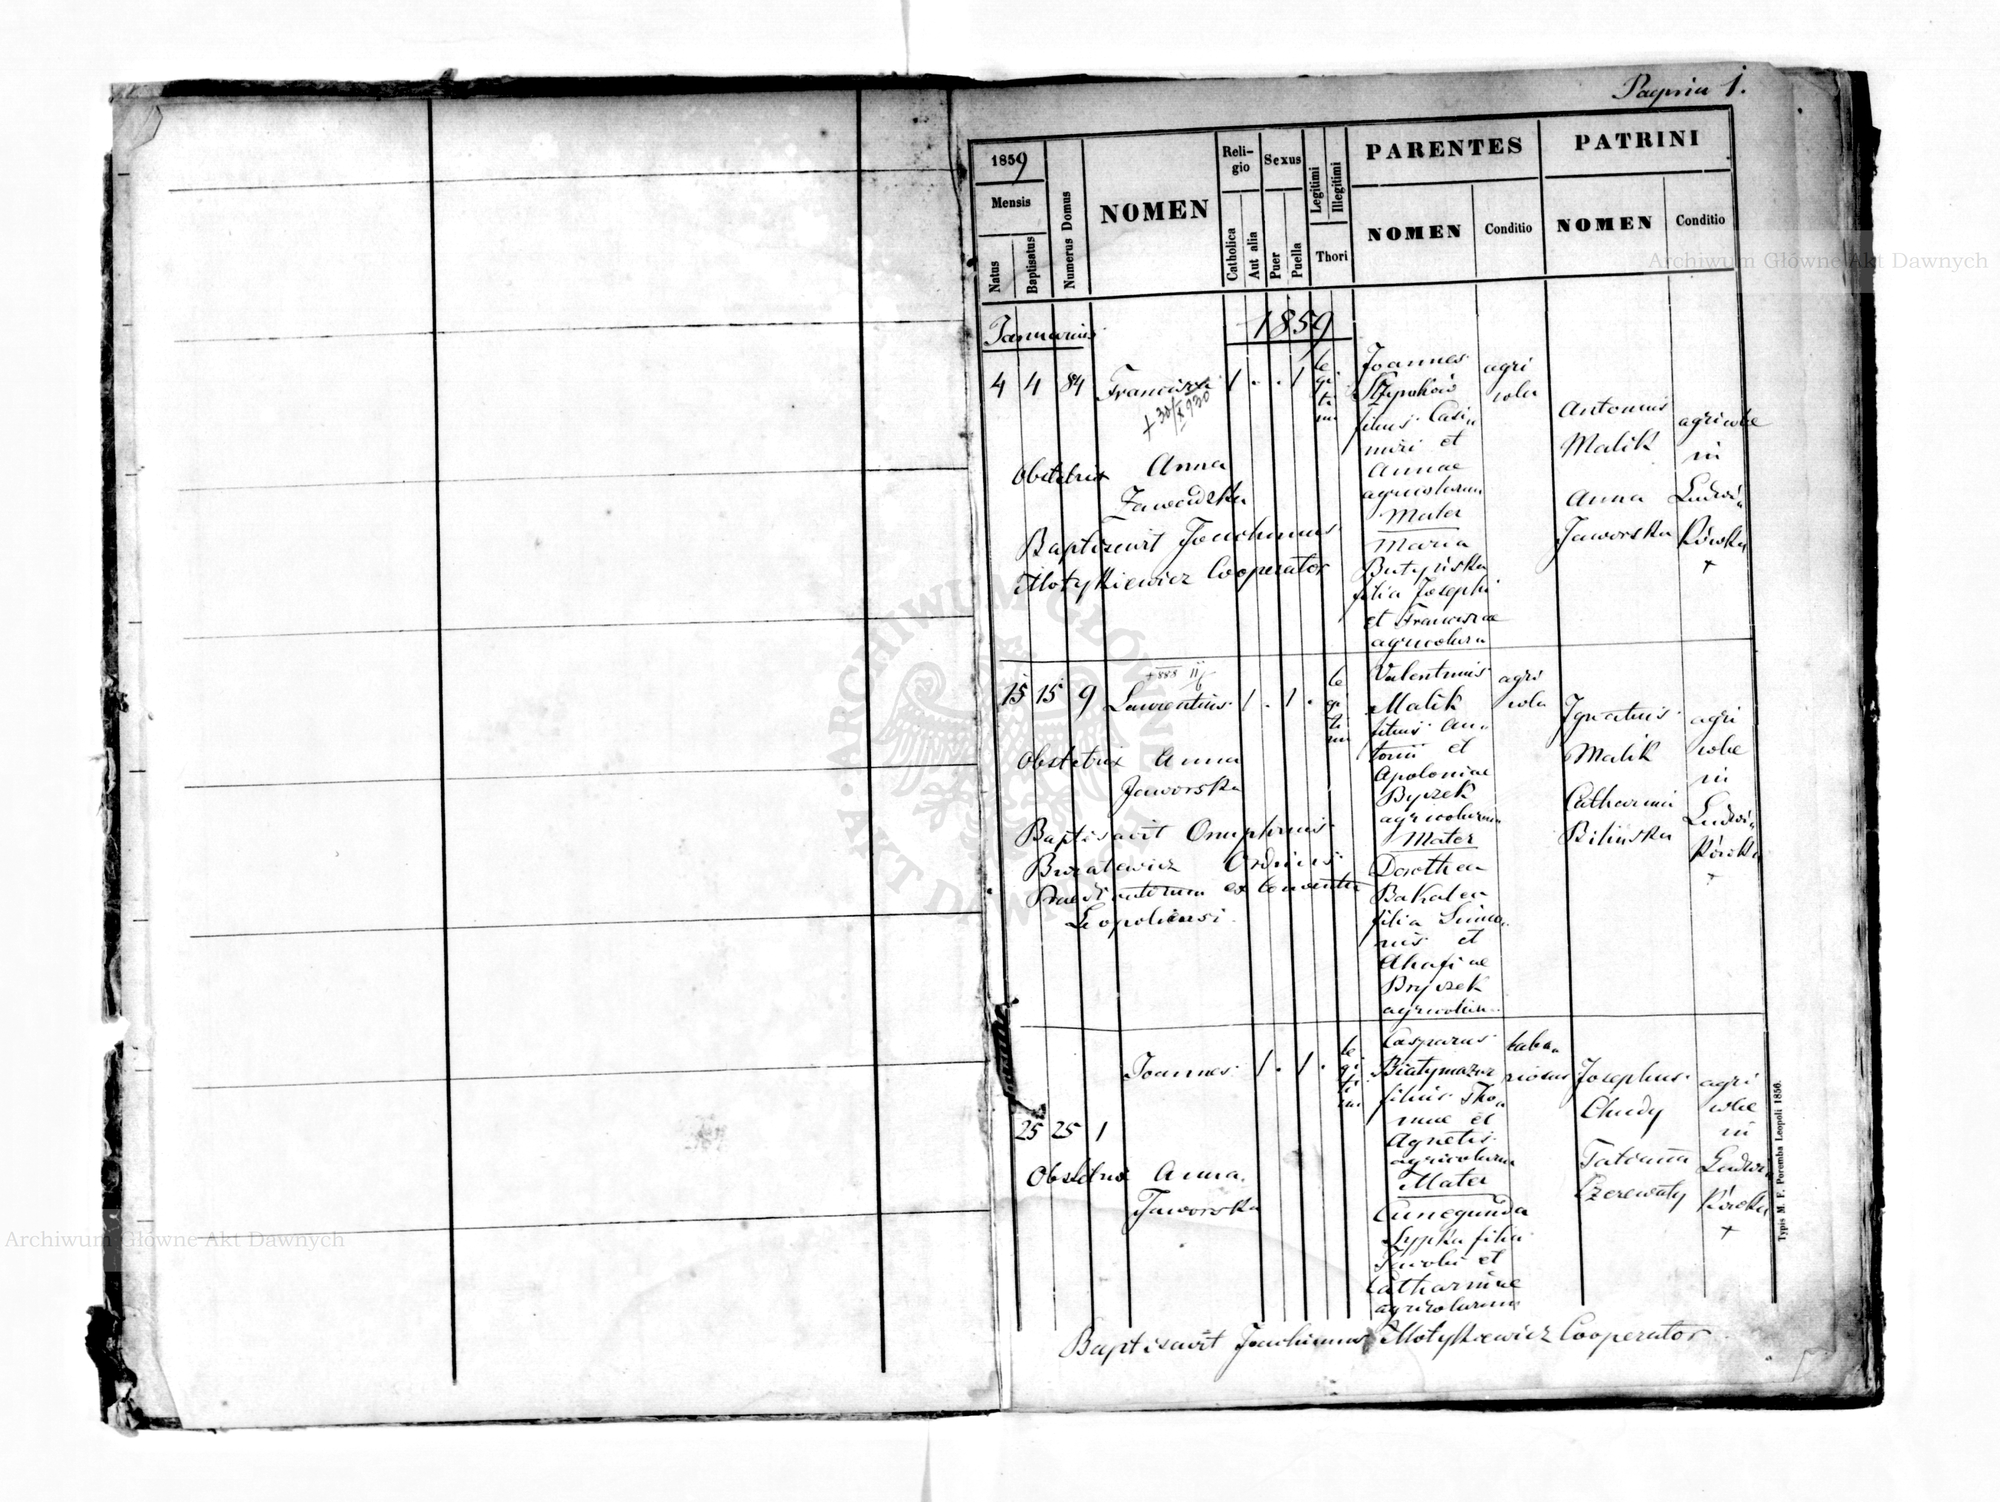 Pagina 1.
1859
Mensis
Natus
Baptisatus
Numerus Domus
NOMEN
Reli-
gio
Catholica
Aut alia
Sexus
Puer
Puella
Legitimi
Illegitimi
Thori
PARENTES
NOMEN
Conditio
PATRINI
NOMEN
Conditio
Januarius
1859
4 4 84 Francisca 1 . . 1
le
gi
ti
mi
+ 30/X 930
Obstetrix Anna
Zawadzka
Baptisavit Joachimus
Motykiewicz Cooperator
Joannes
filius Casi
miri et
Annae
agricolarum
Mater
Maria
filia Josephi
et Franciscae
agricolarum
agri
cola
Antonius
Malik
Anna
Jaworska
agricolae
in
Ludwi
kówka
+
15 15 9 Laurentius 1 . 1 .
+ 888 11/6
le
gi
ti
mi
Obstetrix Anna
Jaworska
Baptisavit Onuphrius
Ordinis
Praedicatorum ex Conventu
Leopoliensi.
Valentinus
Malik
filius An
tonii et
Apoloniae
Bryzek
agricolarum
Mater
Dorothea
Bakalea
filia Simo
nis et
Ahafiae
Bryzek
agricolarum
agri
cola
Ignatius
Malik
Catharina
Bilinska
agri
colae
in
Ludwi
kówka
+
25 25 1 Joannes 1 . 1 .
le
gi
ti
mi
Obstetrix Anna
Jaworska
Casparus
Białymazur
filius Tho
mae et
Agnetis
agricolarum
Mater
Cunegunda
Lypka filia
Jacobi et
Catharinae
agricolarum
Josephus
Chudy
Tatianna
Czerewaty
agri
colae
in
Ludwi
kówka
+
Baptisavit Joachimus Motykiewicz Cooperator
Typis M. F. Poremba Leopoli 1856.
ARCHIWUM GŁÓWNE AKT DAWNYCH
Archiwum Główne Akt Dawnych
Archiwum Główne Akt Dawnych